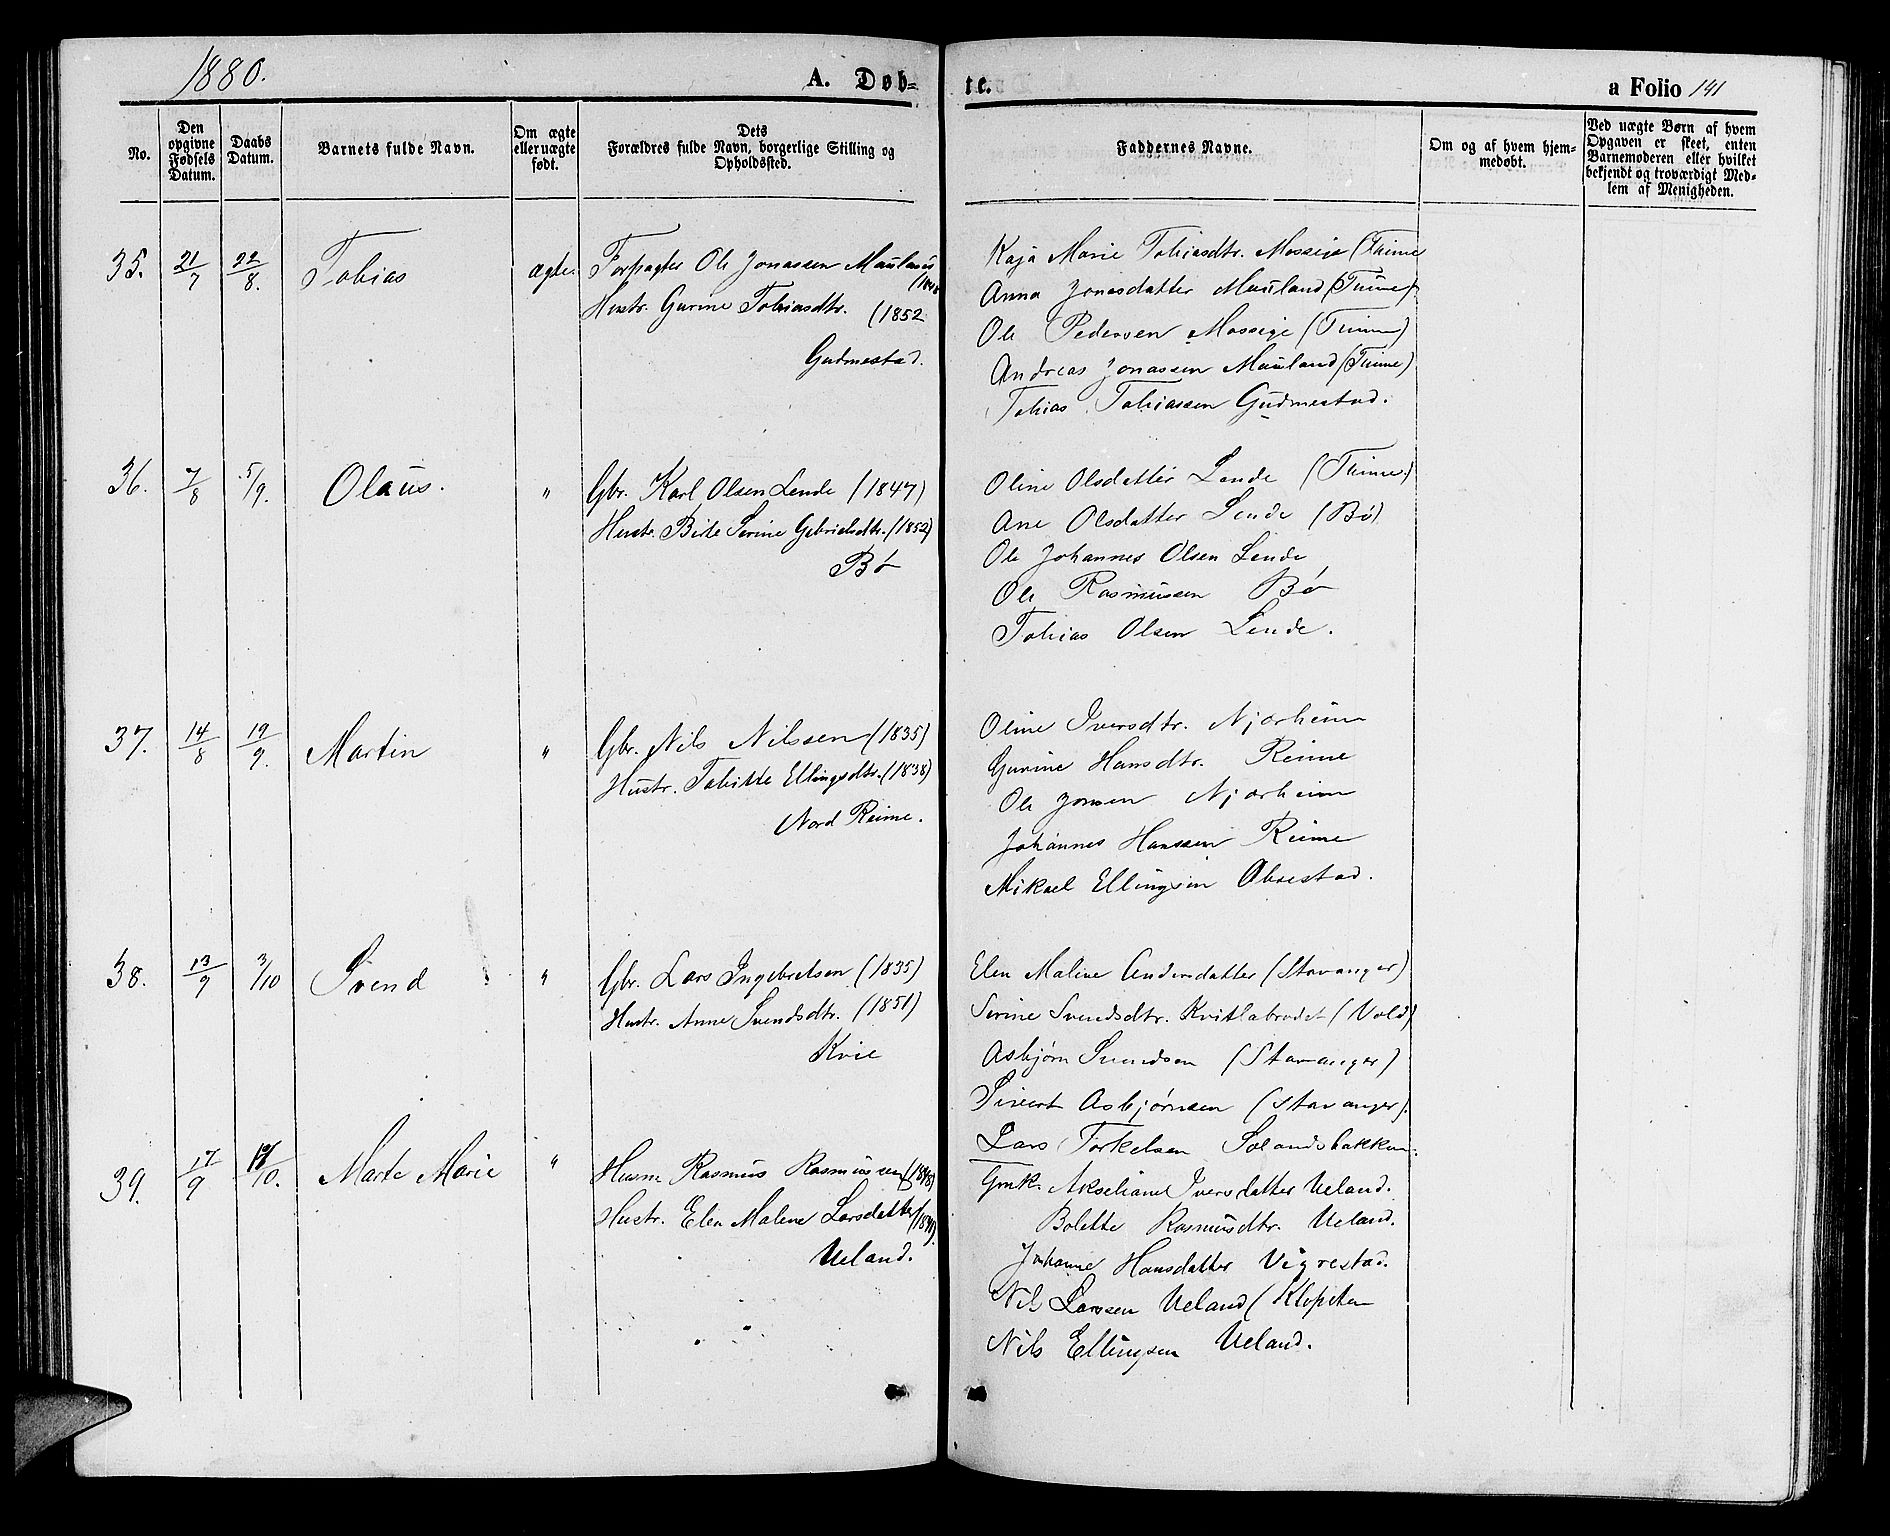 1880.
A. Døb=
te.
a Folio 141
No.
Den opgivne Fødsels Datum.
Daabs Datum.
Barnets fulde Navn.
Om ægte eller uægte født.
Dets Forældres fulde Navn, borgerlige Stilling og Opholdssted.
Faddernes Navne.
Om og af hvem hjemmedøbt.
Ved uægte Børn af hvem Opgaven er skeet, enten Barnemoderen eller hvilket bekjendt og troværdigt Medlem af Menigheden.
35. 21/7 22/8. Tobias ægte.
Forpagter Ole Jonassen Mauland
Hustr. Gurine Tobiasdtr. (1852
Gudmestad.
Kaja Marie Tobiasdtr. Mossige (Thime
Anna Jonasdatter Mauland (Thime)
Ole Pedersen Mossige (Thime)
Andreas Jonassen Mauland (Thime)
Tobias Tobiassen Gudmestad.
36. 7/8 5/9. Olaus. "
Gbr. Karl Olsen Lende (1847)
Hustr. Birte Serine Gabrielsdtr. (1852)
Bø
Oline Olsdatter Lende (Thime)
Ane Olsdatter Lende (Bø)
Ole Johannes Olsen Lende
Ole Rasmussen Bø
Tobias Olsen Lende.
37. 14/8 19/9. Martin "
Gbr. Nils Nilssen (1835)
Hustr. Tabitte Ellingsdtr. (1838)
Nord Reime.
Oline Iversdtr. Njærheim
Gurine Hansdtr. Reime
Ole Jonsen Njærheim
Johannes Hanssen Reime
Mikael Ellingsen Obrestad.
38. 13/9 3/10 Svend "
Gbr. Lars Ingebretsen (1835)
Hustr. Anne Svendsdtr. (1851)
Kvie
Elen Maline Andersdatter (Stavanger)
Serine Svendsdtr. Kvitlabrodet (Vold)
Asbjørn Svendsen (Stavanger)
Sivert Asbjørnsen (Stavanger).
Lars Torkelsen Sælandsbakken.
39. 17/9 /10. Marte Marie "
Husm. Rasmus Rasmussen
Hustr. Elen Malene Larsdatter
Ueland.
Gmk. Akseliane Iversdatter Ueland.
Bolette Rasmusdtr. Ueland.
Johanne Hansdatter Vigrestad.
Nils Larssen Ueland (Klopten
Nils Ellingsen Ueland.